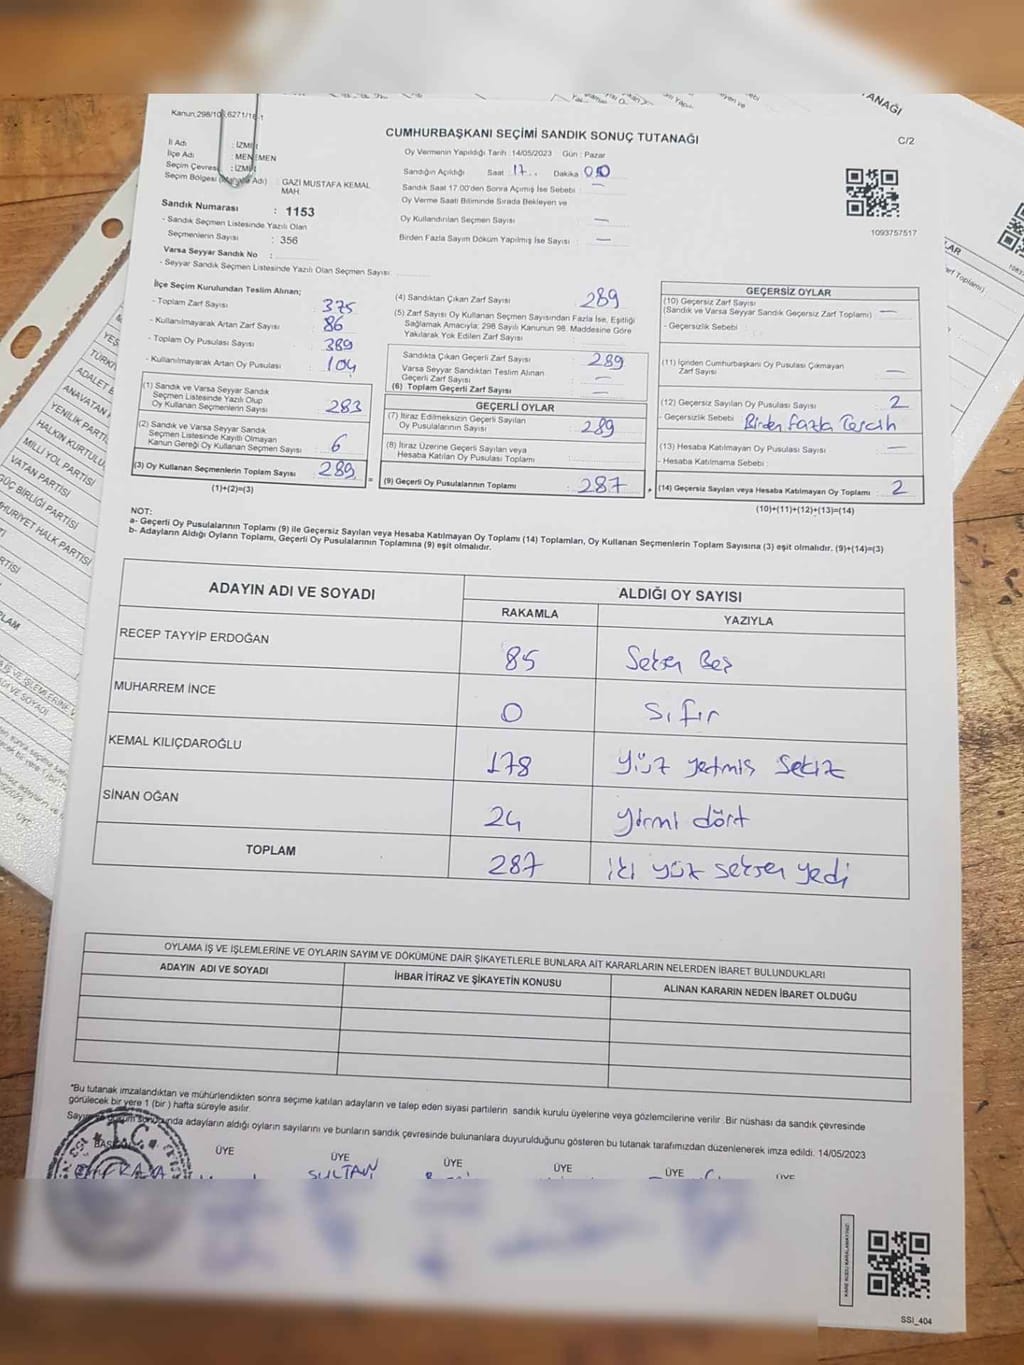 Kanun,298/10
CUMHURBAŞKANI SEÇİMİ SANDIK SONUÇ TUTANAĞI
C/2
Oy Vermenin Yapıldığı Tarih : 14/05/2023 Gün : Pazar
İli Adı : İZMİR
İlçe Adı : MENEMEN
Seçim Çevresi : İZMİR
Seçim Bölgesi Adı) : GAZİ MUSTAFA KEMAL
MAH.
Sandık Numarası : 1153
- Sandık Seçmen Listesinde Yazılı Olan
Seçmenlerin Sayısı : 356
Varsa Seyyar Sandık No :
- Seyyar Sandık Seçmen Listesinde Yazılı Olan Seçmen Sayısı :
Sandığın Açıldığı Saat : 17 Dakika
Sandık Saat 17.00'den Sonra Açılmış İse Sebebi : —
Oy Verme Saati Bitiminde Sırada Bekleyen ve
Oy Kullandırılan Seçmen Sayısı : —
Birden Fazla Sayım Döküm Yapılmış İse Sayısı : —
1093757517
İlçe Seçim Kurulundan Teslim Alınan;
- Toplam Zarf Sayısı : 375
- Kullanılmayarak Artan Zarf Sayısı : 86
- Toplam Oy Pusulası Sayısı : 389
- Kullanılmayarak Artan Oy Pusulası : 104
(1) Sandık ve Varsa Seyyar Sandık
Seçmen Listesinde Yazılı Olup
Oy Kullanan Seçmenlerin Sayısı : 283
(2) Sandık ve Varsa Seyyar Sandık
Seçmen Listesinde Kayıtlı Olmayan
Kanun Gereği Oy Kullanan Seçmen Sayısı : 6
(3) Oy Kullanan Seçmenlerin Toplam Sayısı : 289
(1)+(2)=(3)
(4) Sandıktan Çıkan Zarf Sayısı : 289
(5) Zarf Sayısı Oy Kullanan Seçmen Sayısından Fazla İse, Eşitliği
Sağlamak Amacıyla; 298 Sayılı Kanunun 98. Maddesine Göre
Yakılarak Yok Edilen Zarf Sayısı :
Sandıkta Çıkan Geçerli Zarf Sayısı : 289
Varsa Seyyar Sandıktan Teslim Alınan
Geçerli Zarf Sayısı : —
(6) Toplam Geçerli Zarf Sayısı : —
GEÇERLİ OYLAR
(7) İtiraz Edilmeksizin Geçerli Sayılan
Oy Pusulalarının Sayısı : 289
(8) İtiraz Üzerine Geçerli Sayılan veya
Hesaba Katılan Oy Pusulası Toplamı :
(9) Geçerli Oy Pusulalarının Toplamı : 287
GEÇERSİZ OYLAR
(10) Geçersiz Zarf Sayısı
(Sandık ve Varsa Seyyar Sandık Geçersiz Zarf Toplamı) : —
- Geçersizlik Sebebi :
(11) İçinden Cumhurbaşkanı Oy Pusulası Çıkmayan
Zarf Sayısı : —
(12) Geçersiz Sayılan Oy Pusulası Sayısı : 2
- Geçersizlik Sebebi : Birden fazla tercih
(13) Hesaba Katılmayan Oy Pusulası Sayısı : —
- Hesaba Katılmama Sebebi :
(14) Geçersiz Sayılan veya Hesaba Katılmayan Oy Toplamı : 2
(10)+(11)+(12)+(13)=(14)
NOT:
a- Geçerli Oy Pusulalarının Toplamı (9) ile Geçersiz Sayılan veya Hesaba Katılmayan Oy Toplamı (14) Toplamları, Oy Kullanan Seçmenlerin Toplam Sayısına (3) eşit olmalıdır. (9)+(14)=(3)
b- Adayların Aldığı Oyların Toplamı, Geçerli Oy Pusulalarının Toplamına (9) eşit olmalıdır.
ADAYIN ADI VE SOYADI
ALDIĞI OY SAYISI
RAKAMLA YAZIYLA
RECEP TAYYİP ERDOĞAN 85 Seksen Beş
MUHARREM İNCE 0 Sıfır
KEMAL KILIÇDAROĞLU 178 yüz yetmiş sekiz
SİNAN OĞAN 24 yirmi dört
TOPLAM 287 iki yüz seksen yedi
OYLAMA İŞ VE İŞLEMLERİNE VE OYLARIN SAYIM VE DÖKÜMÜNE DAİR ŞİKAYETLERLE BUNLARA AİT KARARLARIN NELERDEN İBARET BULUNDUKLARI
ADAYIN ADI VE SOYADI İHBAR İTİRAZ VE ŞİKAYETİN KONUSU ALINAN KARARIN NEDEN İBARET OLDUĞU
*Bu tutanak imzalandıktan ve mühürlendikten sonra seçime katılan adayların ve talep eden siyasi partilerin sandık kurulu üyelerine veya gözlemcilerine verilir. Bir nüshası da sandık çevresinde
görülecek bir yere 1 (bir ) hafta süreyle asılır.
adayların aldığı oyların sayılarını ve bunların sandık çevresinde bulunanlara duyurulduğunu gösteren bu tutanak tarafımızdan düzenlenerek imza edildi. 14/05/2023
T.C.
ÜYE ÜYE ÜYE ÜYE ÜYE ÜYE
SULTAN
KARE KODU KARALAMAYINIZ!
SSİ_404
TANAĞI
ANAVATAN
YENİLİK PARTİ
HALKIN KURTULU
MİLLİ YOL PARTİSİ
VATAN PARTİSİ
GÜÇ BİRLİĞİ PARTİSİ
HURİYET HALK PARTİSİ